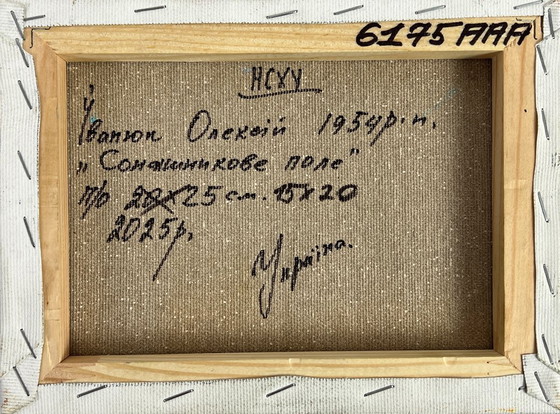 6175AAA
НСХУ
Іванюк Олексій 1954р.н.
„Соняшникове поле"
п/о 20х25 см. 15х20
2025р.
Україна.